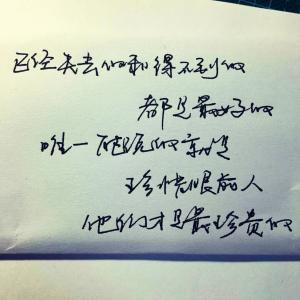 已经失去的和得不到的
都是最好的
唯一能做的就是
珍惜眼前人
他们才是最珍贵的